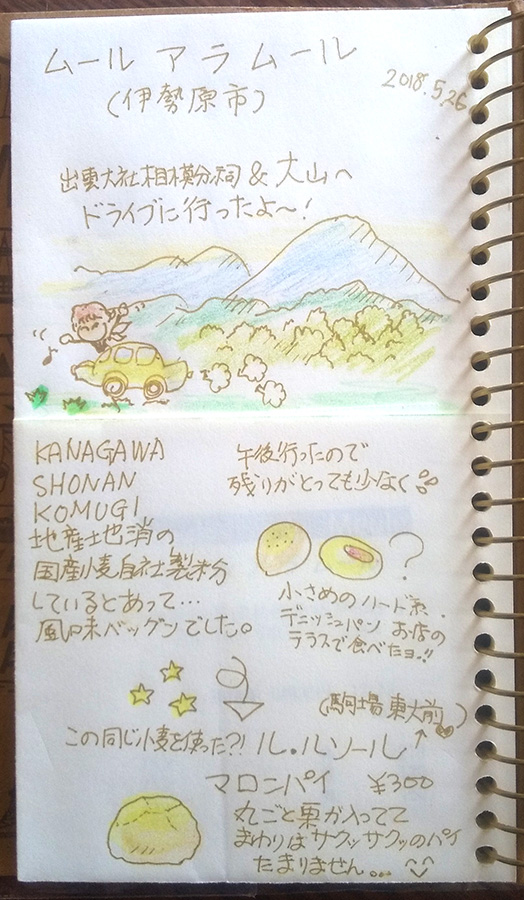 ムール ア ラ ムール
(伊勢原市)
2018.5.26
出雲大社相模分祠 & 大山へ
ドライブに行ったよ〜!
KANAGAWA
SHONAN
KOMUGI
地産地消の
国産小麦自社製粉
しているとあって…
風味バツグンでした。
午後行ったので
残りがとっても少なく
?
小さめのハード系.
デニッシュパン お店の
テラスで食べたヨ..!!
(駒場東大前)
この同じ小麦を使った?! ル・ルソール↑
マロンパイ ¥300
丸ごと栗が入ってて
まわりはサクッサクッのパイ
たまりません…